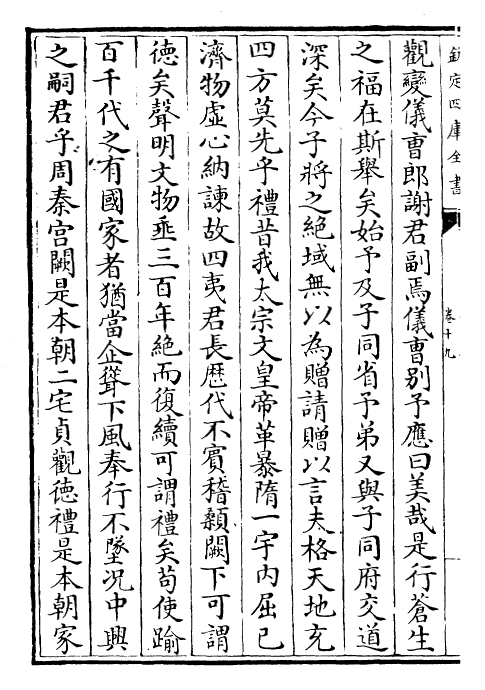 欽定四庫全書
卷十九
觀變儀曹郎謝君副焉儀曹别予應曰美哉是行蒼生
之福在斯舉矣始予及子同省予弟又與子同府交道
深矣今子將之絶域無以為贈請贈以言夫格天地充
四方莫先乎禮昔我太宗文皇帝革暴隋一宇内屈已
濟物虚心納諫故四夷君長歴代不賓稽顙闕下可謂
德矣聲明文物垂三百年絶而復續可謂禮矣茍使踰
百千代之有國家者猶當企聳下風奉行不墜况中興
之嗣君乎周秦宫闕是本朝二宅貞觀德禮是本朝家